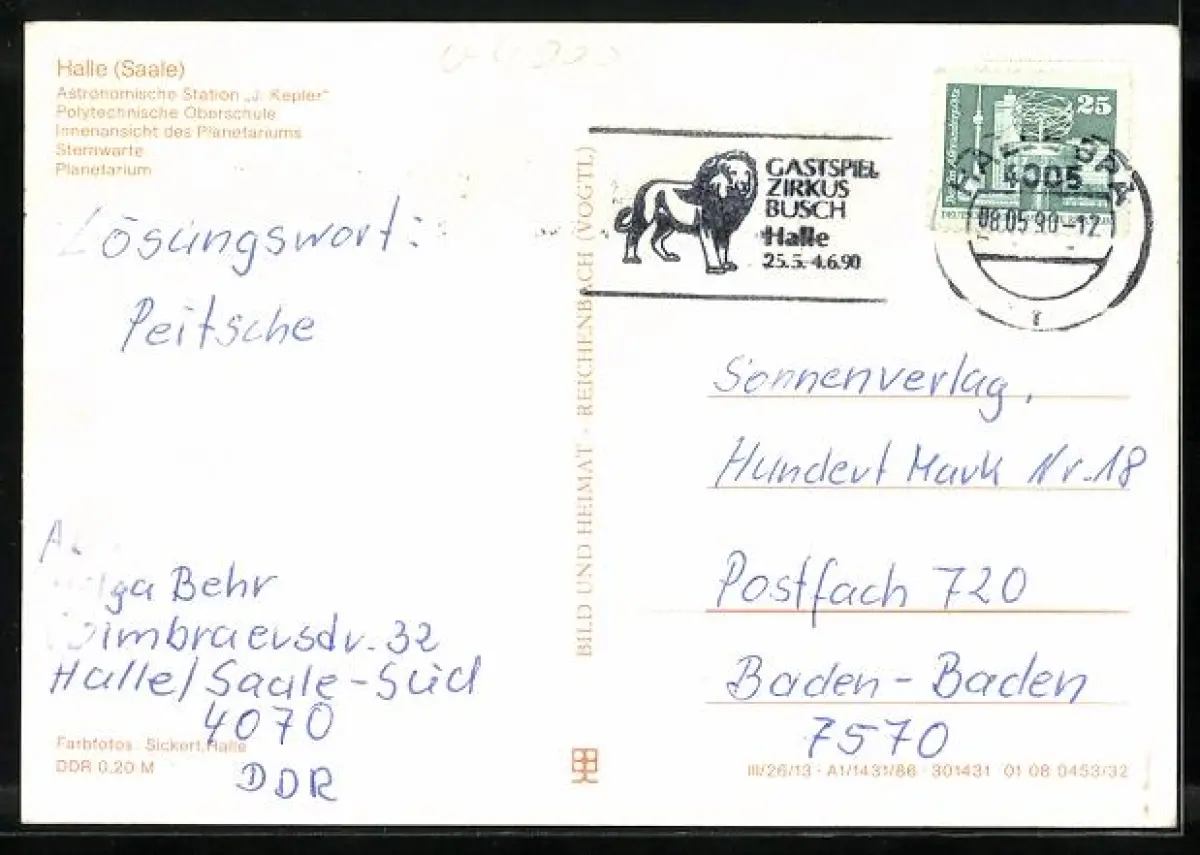 Halle (Saale)
Astronomische Station „J. Kepler"
Polytechnische Oberschule
Innenansicht des Planetariums
Sternwarte
Planetarium
Lösungswort:
Peitsche
Behr
32
Halle/Saale-Süd
4070
DDR
Farbfotos: Sickert, Halle
DDR 0,20 M
BILD UND HEIMAT · REICHENBACH (VOGTL)
GASTSPIEL
ZIRKUS
BUSCH
Halle
25.5.-4.6.90
25
HALLE
4005
08.05.90-12
r
Sonnenverlag,
Hundert Mark Nr. 18
Postfach 720
Baden-Baden
7570
III/26/13 · A1/1431/86 · 301431 01 08 0453/32